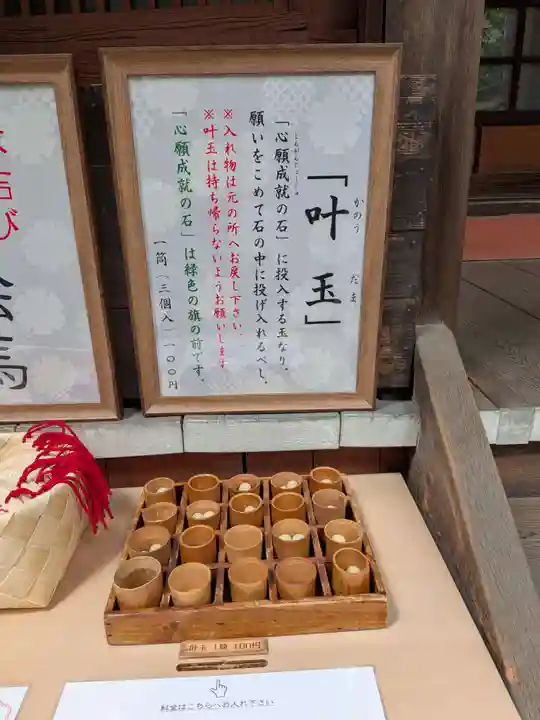 「叶玉」
かのう だま
「心願成就の石」に投入する玉なり。
しんがんじょうじゅ
願いをこめて石の中に投げ入れるべし。
※入れ物は元の所へお戻し下さい。
※叶玉は持ち帰らないようお願いします
「心願成就の石」は緑色の旗の前です。
一筒(三個入)一〇〇円
結び
絵馬
叶玉 1筒 100円
料金はこちらへお入れ下さい